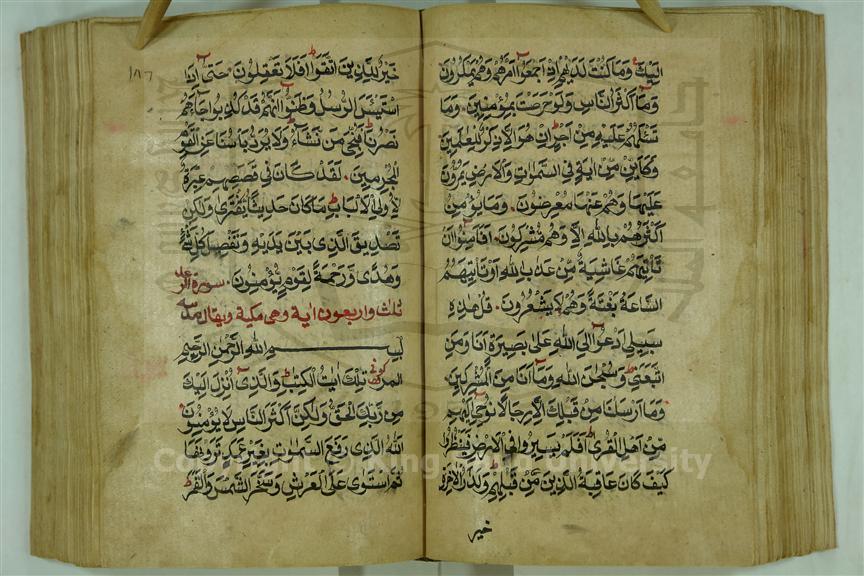 اليك وما كنت لديهم اذ اجمعوا امرهم وهم يمكرون
وما اكثر الناس ولو حرصت بمؤمنين وما
تسئلهم عليه من اجر ان هو الا ذكر للعلمين
وكاين من اية في السموات والارض يمرون
عليها وهم عنها معرضون وما يؤمن
اكثرهم بالله الا وهم مشركون افامنوا ان
تاتيهم غاشية من عذاب الله او تاتيهم
الساعة بغتة وهم لا يشعرون قل هذه
سبيلي ادعوا الى الله على بصيرة انا ومن
اتبعني وسبحن الله وما انا من المشركين
وما ارسلنا من قبلك الا رجالا نوحي اليهم
من اهل القرى افلم يسيروا في الارض فينظروا
كيف كان عاقبة الذين من قبلهم ولدار الاخرة
خير
١٨٦
خير للذين اتقوا افلا تعقلون حتى اذا
استيئس الرسل وظنوا انهم قد كذبوا جاءهم
نصرنا فنجي من نشاء ولا يرد باسنا عن القوم
المجرمين لقد كان في قصصهم عبرة
لاولي الالباب ما كان حديثا يفترى ولكن
تصديق الذي بين يديه وتفصيل كل شئ
وهدى ورحمة لقوم يؤمنون سورة الرعد
ثلث واربعون اية وهي مكية ويقال مدنية
بسم الله الرحمن الرحيم
المر كوفي تلك ايت الكتب والذي انزل اليك
من ربك الحق ولكن اكثر الناس لا يؤمنون
الله الذي رفع السموت بغير عمد ترونها
ثم استوى على العرش وسخر الشمس والقمر